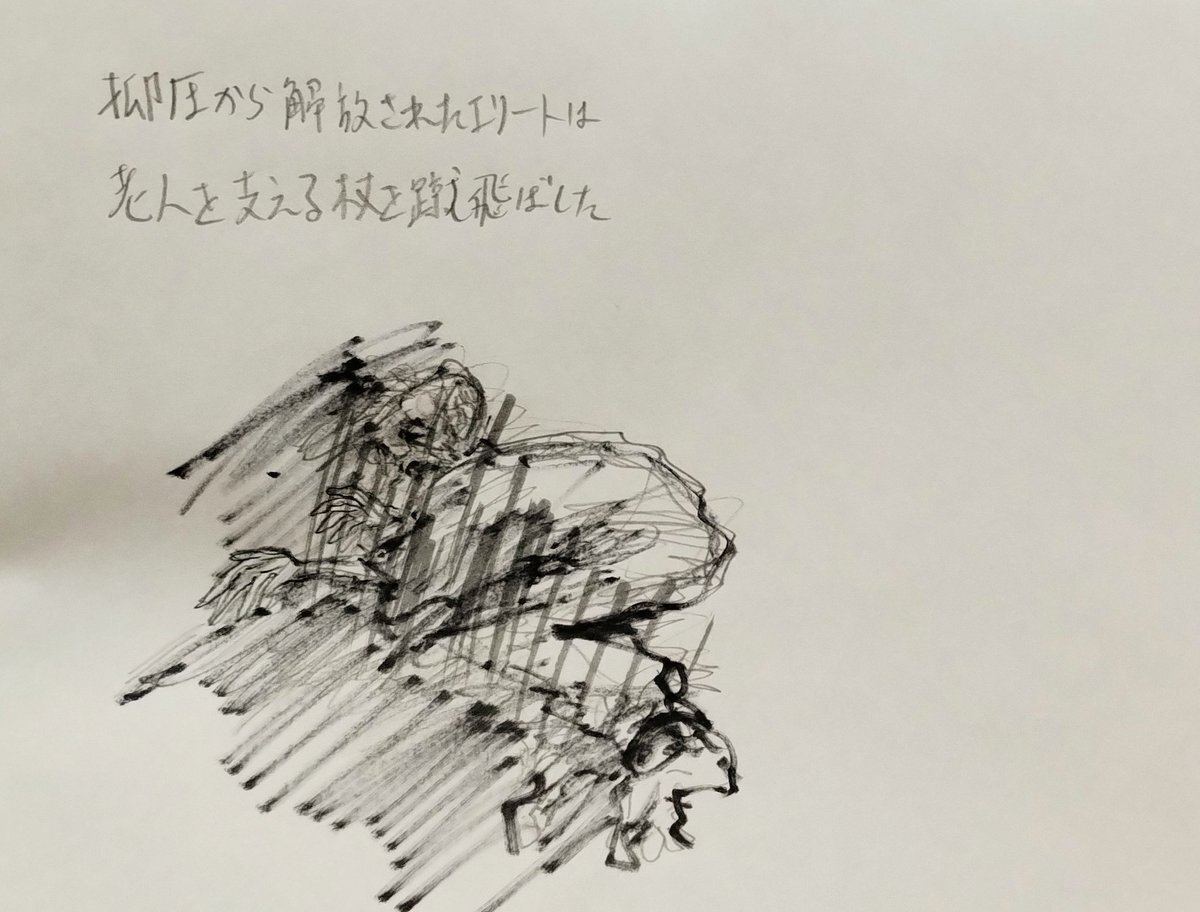 抑圧から解放されたエリートは
老人を支える杖を蹴飛ばした